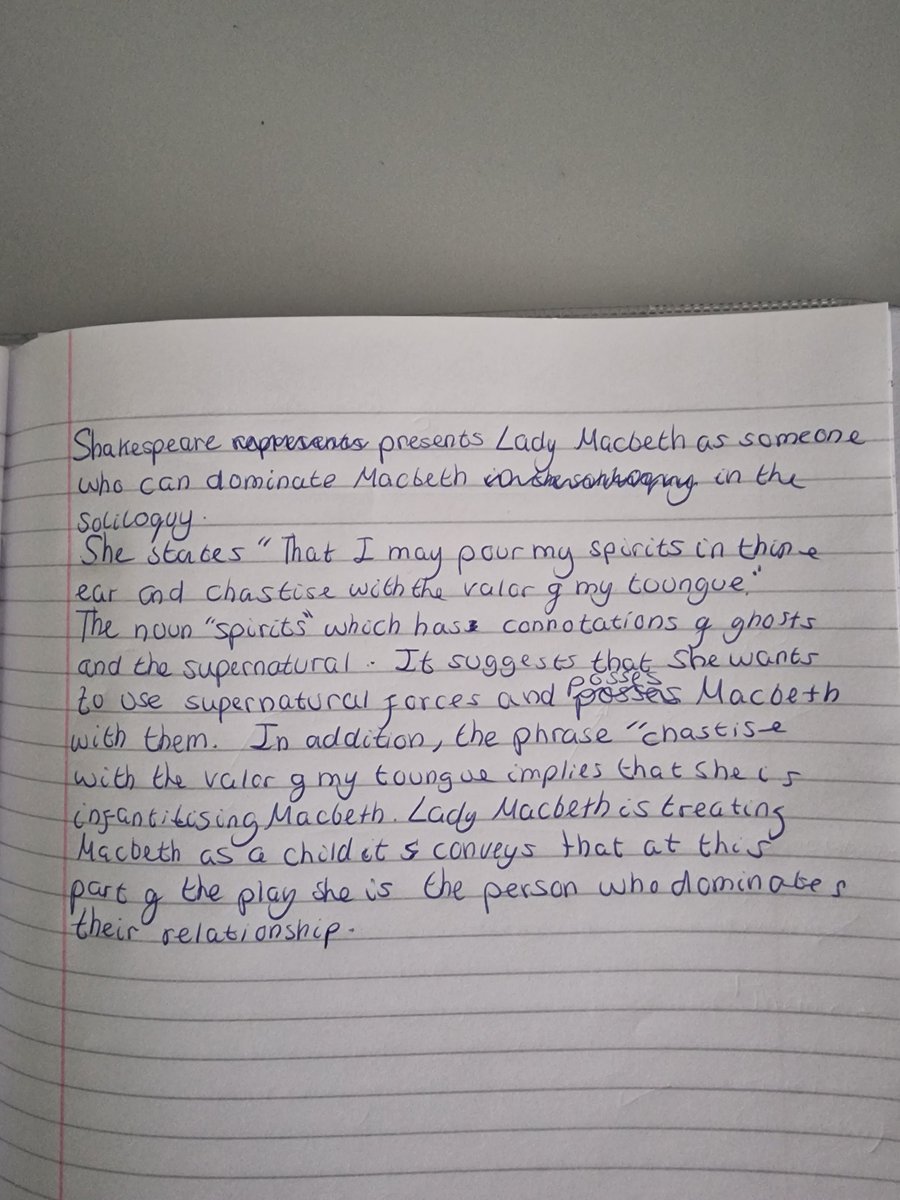 Shakespeare presents Lady Macbeth as someone
who can dominate Macbeth in the
soliloquy.
She states "That I may pour my spirits in thine
ear and chastise with the valor of my toungue."
The noun "spirits" which has connotations of ghosts
and the supernatural. It suggests that she wants
posses
to use supernatural forces and Macbeth
with them. In addition, the phrase "chastise
with the valor of my toungue implies that she is
infantilising Macbeth. Lady Macbeth is treating
Macbeth as a child it conveys that at this
part of the play she is the person who dominates
their relationship.